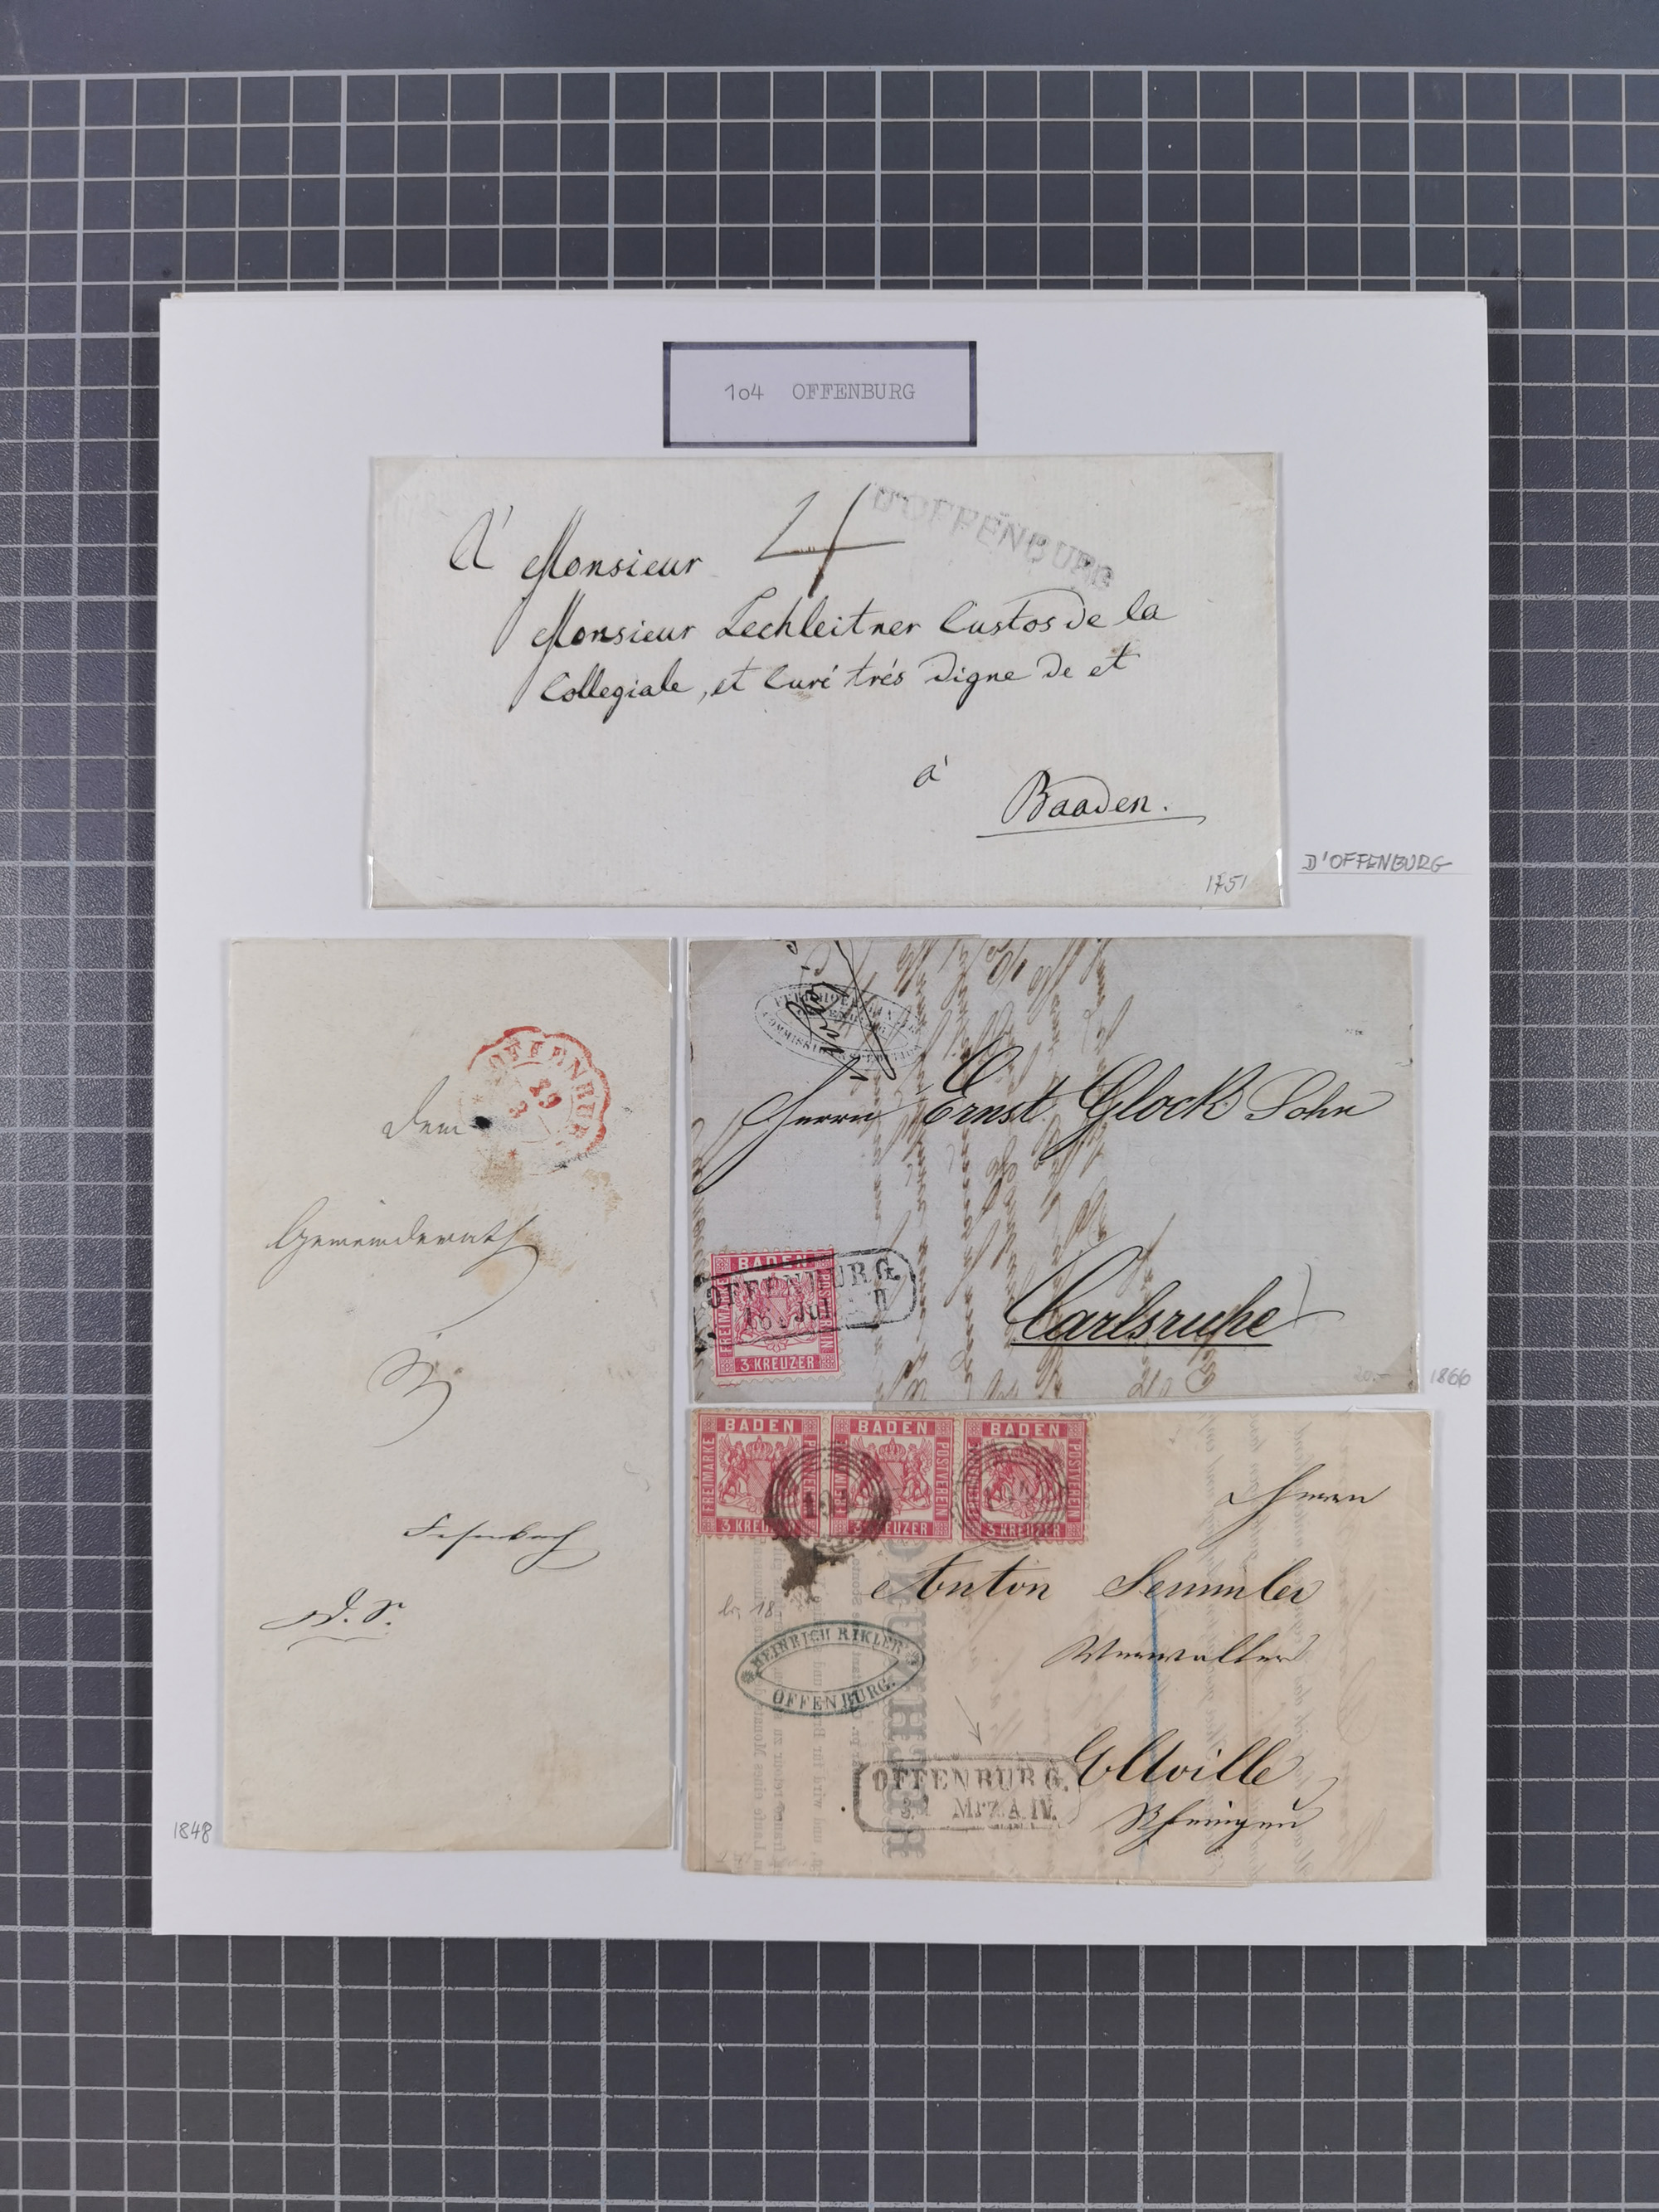 1o4 OFFENBURG
D'OFFENBURG
4
A' Monsieur
Monsieur Lechleitner Custos de la
Collegiale, et Curé trés digne de et
à
Baaden.
1751
D'OFFENBURG
OFFENBURG
29
Dem
Gemeinderath
D. S.
1848
Herrn Ernst Glock Sohn
Carlsruhe
BADEN
FREIMARKE
POSTVEREIN
3 KREUZER
OFFENBURG
16. JUL
20.-
1866
BADEN
FREIMARKE
3 KREUZER
BADEN
POSTVEREIN
3 KREUZER
BADEN
FREIMARKE
POSTVEREIN
3 KREUZER
104
Herrn
Anton Semmler
Verwalter
Eltville
Rheingau
18
HEINRICH RIKLER
OFFENBURG.
OFFENBURG.
Mrz. A. IV.